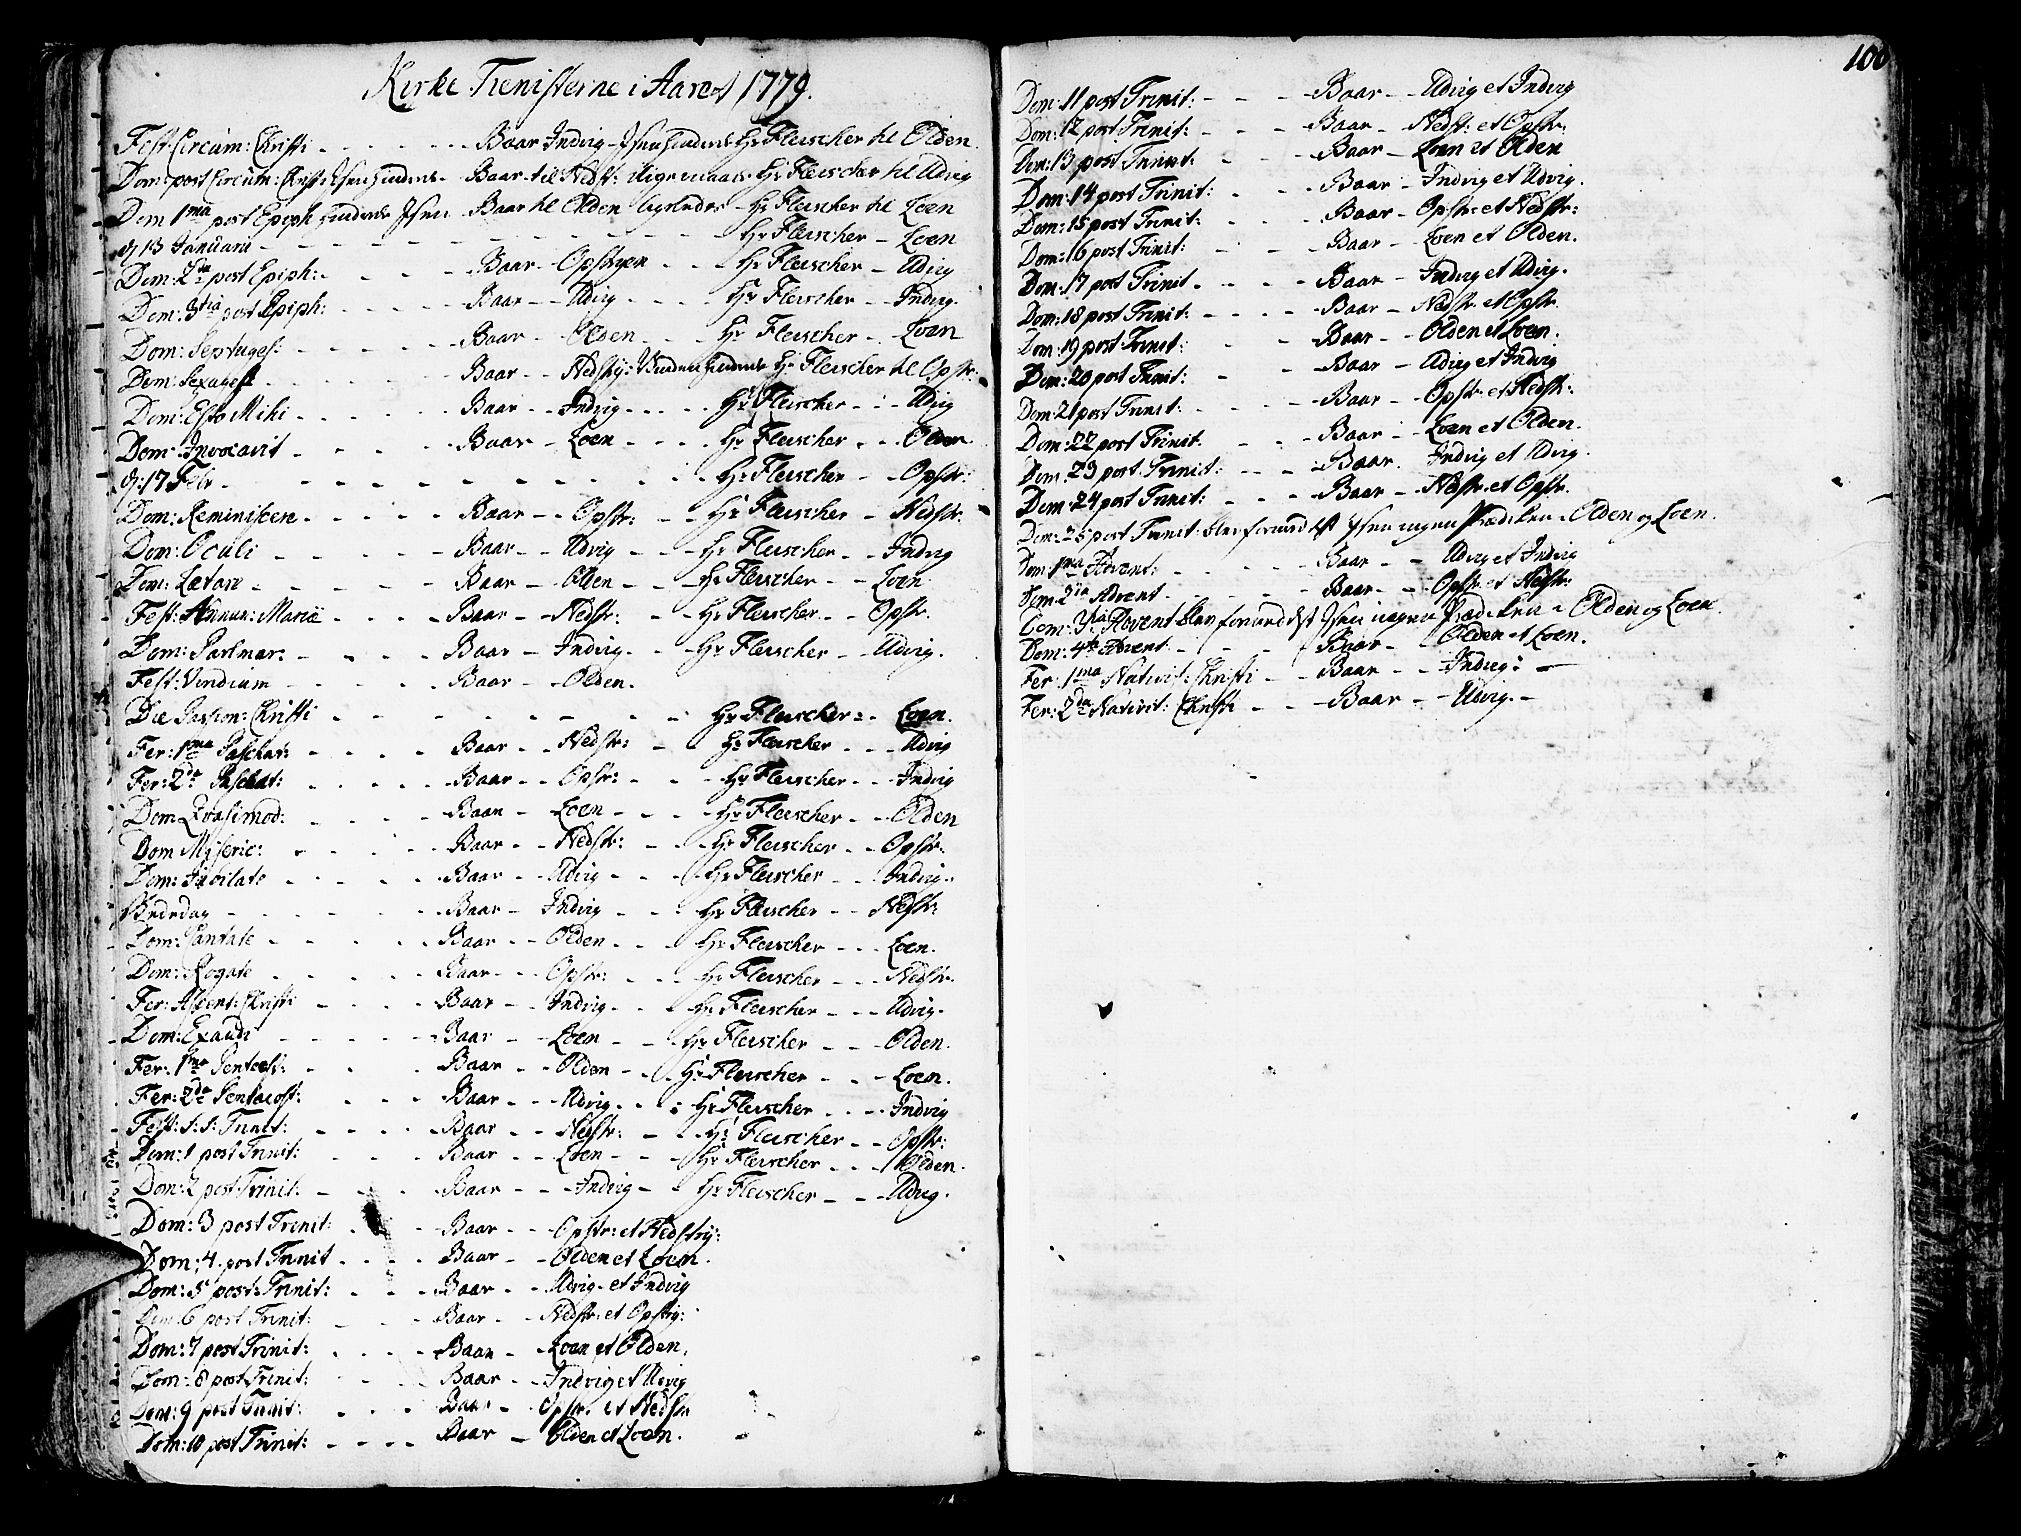 Kirke Tienisterne i Aaret 1779.
Fest: Circum: Christi - - - - - Baar Indvig - Isen hindrede Hr Fleischer til Olden.
Dom: post Circum: Christi Isen hindrede - Baar til Nedst: ligemaade Hr Fleischer til Udvig
Dom 1ma post Epiph hindrede Isen Baar til Olden ligeledes - Hr Fleischer til Loen
d 13 Januarii - - - - - Hr Fleischer - Loen
Dom: 2da post Epiph: - - - - Baar - Opstryen - - - Hr Fleischer - Udvig
Dom: 3tia post Epiph: - - - - Baar - - Udvig - - - - Hr Fleischer - - Indvig.
Dom: Septuages: - - - - - Baar - - Olden - - - Hr Fleischer - - Loen
Dom: Sexagesi - - - - - Baar - - Nedstry: hindrede Hr Fleischer til Opstr:
Dom: Esto Mihi - - - - - Baar - - Indvig - - - - Hr Fleischer - - - Udvig
Dom: Invocavit - - - - Baar - Loen - - - - Hr Fleischer - - - Olden.
d: 17 Febr - - - - - - - - Hr Fleischer - - Opstr:
Dom: Reminiscere - - - - - Baar - - Opstr: - - Hr Fleischer - Nedstr:
Dom: Oculi - - - - - Baar - - Udvig - - - Hr Fleischer - - Indvig
Dom: Lætare - - - - - Baar - - Olden - - - Hr Fleischer - - Loen.
Fest: Annun: Mariæ - - - - Baar - - Nedstr: - - Hr Fleischer - - Opstr.
Dom: Palmar: - - - - Baar - - Indvig. - - Hr Fleischer - - Udvig.
Fest: Viridium - - - - - Baar - - Olden.
Die Passion: Christi - - - - - - - - Hr Fleischer: - Loen.
Fer: 1ma Paschat: - - - - Baar - - Nedstr: - - Hr Fleischer - - - Udvig
Fer: 2da Paschat: - - - - - Baar - - Opstr: - - - Hr Fleischer - - - Indvig
Dom Qvasimod: - - - - Baar - - Loen - - - - Hr Fleischer - - - Olden
Dom Miseric: - - - - Baar - - Nedstr: - - - Hr Fleischer - - Opstr.
Dom: Jubilate - - - - - Baar - - Udvig - - - Hr Fleischer - - Indvig.
Bededag - - - - - - Baar - Indvig - - - Hr Fleischer - - Nedstr:
Dom: Cantate - - - - - Baar - - Olden - - - Hr Fleischer - - - Loen.
Dom: Rogate - - - - - Baar - - - Opstr: - - - Hr Fleischer - - - Nedstr.
Fer: Ascent: Christi - - - - Baar - - Indvig - - - Hr Fleischer - - - Udvig.
Dom: Exaudi - - - - - Baar - - Loen - - - Hr Fleischer - - - Olden.
Fer: 1ma Pentecost: - - - Baar - - Olden - - - Hr Fleischer - - - Loen.
Fer: 2da Pentacost: - - - Baar - - Udvig. - - Hr Fleischer - - - Indvig
Fest: S: S: Trinit: - - - - Baar - - Nedstr: - - Hr Fleischer - - Opstr:
Dom: 1 post Trinit: - - - Baar - - Loen - - - Hr Fleischer - - - Olden.
Dom: 2 post Trinit: - - - - Baar - - Indvig - - Hr Fleischer - - - Udvig.
Dom: 3 post Trinit: - - - Baar - - Opstr: et Nedstry:
Dom: 4. post Trinit - - - - Baar - - Olden et Loen.
Dom: 5 post: Trinit: - - - - Baar - - Udvig - et Indvig
Dom 6 post Trinit: - - - Baar - - Nedstr: et Opstry:
Dom: 7 post Trinit: - - - - Baar - - Loen et Olden.
Dom: 8 post Trinit: - - - Baar - - Indvig et Udvig
Dom: 9 post Trinit: - - - Baar - - Opstr. et Nedstr
Dom: 10 post Trinit: - - - - Baar - Olden et Loen.
100
Dom: 11 post Trinit: - - - Baar - - Udvig et Indvig
Dom: 12 post Trinit: - - - - Baar - Nedst: et Opstr:
Dom: 13 post Trinit: - - - Baar - Loen et Olden
Dom: 14 post Trinit: - - - Baar - Indvig et Udvig.
Dom: 15 post Trinit: - - - - Baar - Opstr: et Nedstr:
Dom: 16 post Trinit: - - - Baar - Loen et Olden.
Dom: 17 post Trinit - - - - - Baar - Indvig et Udvig.
Dom: 18 post Trinit: - - - - Baar - Nedstr. et Opstr.
Dom 19 post Trinit: - - - Baar - Olden et Loen.
Dom: 20 post Trinit: - - - Baar - Udvig et Indvig
Dom: 21 post Trinit: - - - - Baar - Opstr et Nedstr:
Dom: 22 post Trinit. - - - Baar - Loen et Olden.
Dom 23 post Trinit: - - - Baar. Indvig et Udvig.
Dom: 24 post Trinit: - - - Baar - Nedstr. et Opstr.
Dom: 25 post Trinit: blev formedelst Isen ingen Prædiken i Olden og Loen.
Dom 1ma Advent: - - - - - Baar - - Udvig et Indvig
Dom 2da Advent - - - - - Baar - - Opstr. et Nedstr:
Dom: 3tia Advent blev formedelst Isen ingen Prædiken i Olden og Loen.
Dom: 4ta Advent - - - - Baar - - Olden et Loen.
Fer: 1ma Nativit: Christi - - Baar - - Indvig: -
Fer: 2da Nativit: Christi - - Baar - - Udvig. -